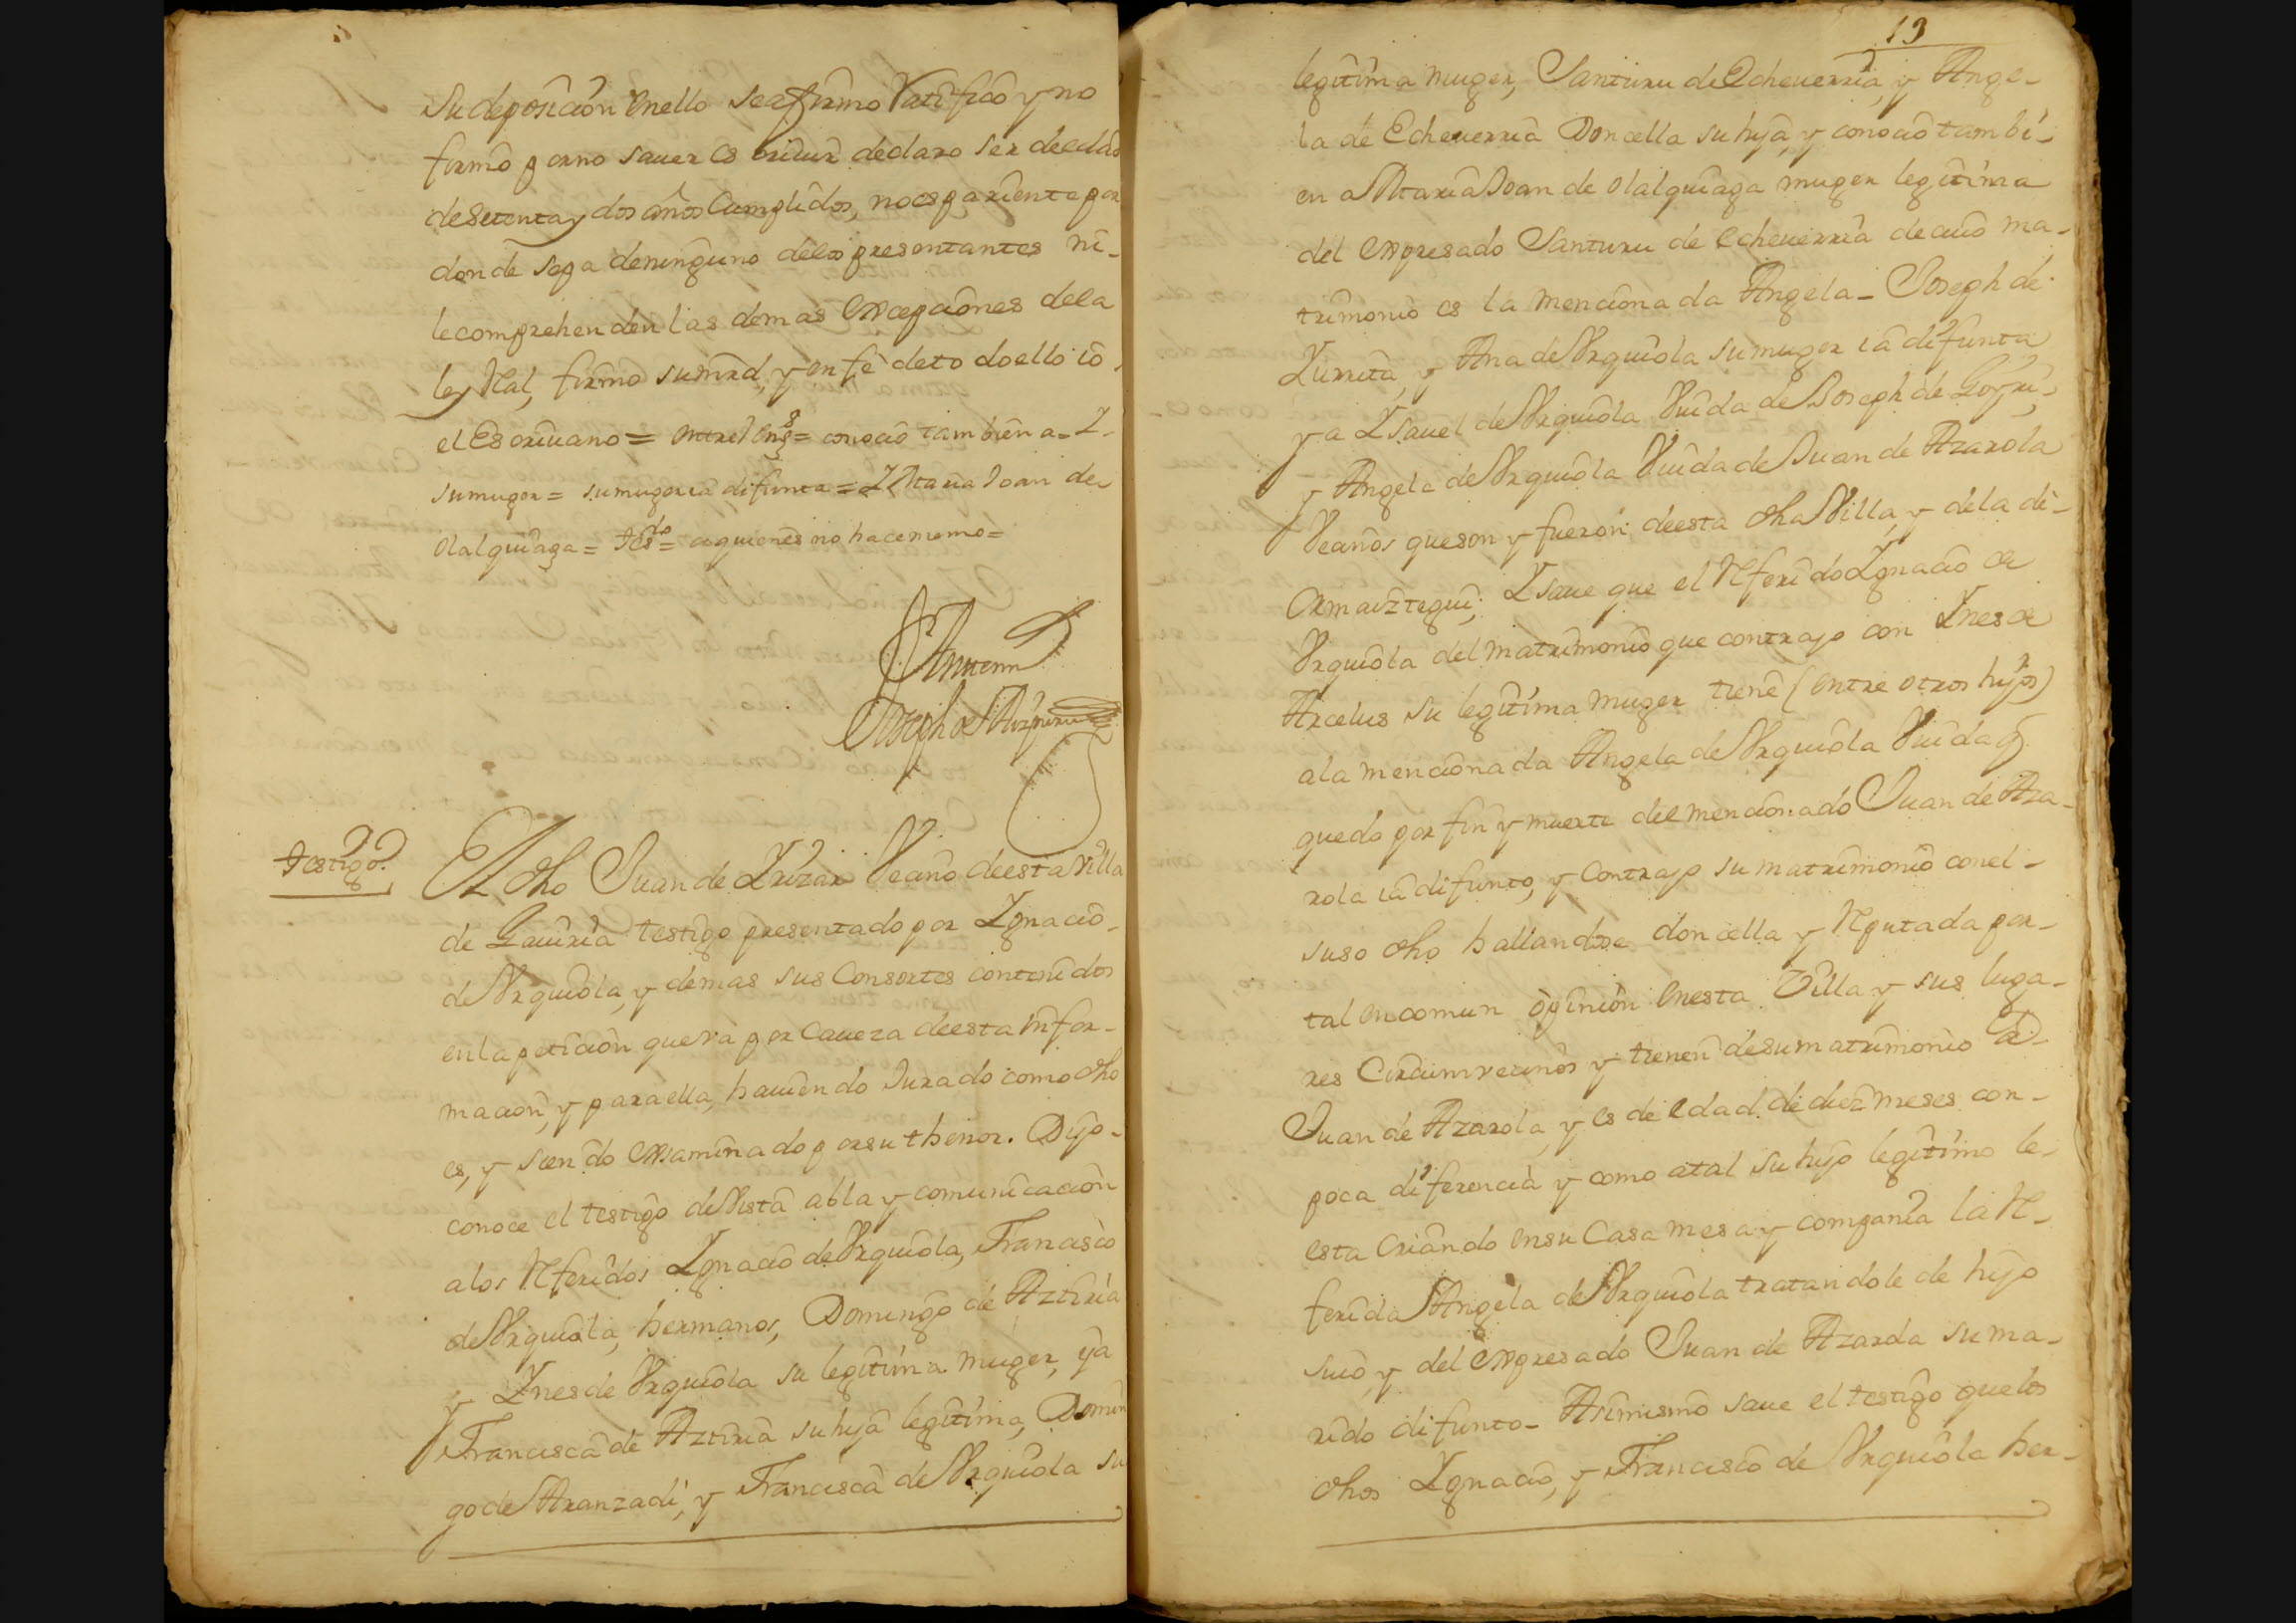 Su deposicion enello seafirmo Ratifico y no
firmo porno saver escriuir declaro ser deedad
desetentay dos años Cumplidos, noes pariente por
donde sepa deninguno delos presentantes ni-
lecomprehenden las demas excepciones dela
ley Rl, firmo sumrd, y en fe deto doello io
el Escriuano = entre Rens = conocio tambien a = I-
sumuger = sumuger ia difunta = I Maria Joan de
Olalquiaga = tesdo = aquienes no hacememo =
Joseph de Aizpuru
Testigo
El dho Juan de Irizar Vecino deesta Villa
de Gauiria testigo presentado por Ignacio-
de Vrquiola, y demas sus Consortes contenidos
enla peticion queva por Caueza deesta infor-
macion, y paraella, hauiendo Jurado como dho
es, y siendo examinado porsu thenor. Dijo-
conoce el testigo deVista abla y comunicacion
alos Referidos Ignacio deVrquiola, Francisco
deVrquiola, hermanos, Domingo de Aztiria
y Ines de Vrquiola su legitima muger, ya
Francisca de Aztiria suhija legitima, Domin
go de Aranzadi, y Francisca deVrquiola su
19
legitima muger, Santuru deEcheuerria, y Ange-
la de Echeuerria Doncella suhija, y conocio tambi-
en a Maria Joan de Olalquiaga muger legitima
del expresado Santuru de Echeuerria decuio ma-
trimonio es la menciona da Angela- Joseph de
Zurruta, y Ana deVrquiola sumuger ia difunta
y a Isauel deVrquiola Viuda deJoseph de Goyri-
y Angela deVrquiola Viuda deJuan de Azarola
Vecinos queson y fueron deesta dha Villa, y dela de-
Ormaiztegui; Isaue que el Referido Ignacio de
Vrquiola del matrimonio que contrajo con Ines de
Arcelus su legitima muger tiene (entre otros hijos)
ala menciona da Angela deVrquiola Viuda q
quedo por fin y muerte del mencionado Juan de Aza-
rola ia difunto, y Contrajo su matrimonio conel-
suso dho hallandose doncella y Reputada por-
tal en comun opinion enesta Villa y sus luga-
res Circumvecinos y tienen desumatrimonio a-
Juan de Azarola, y es de edad de diez meses con-
poca diferencia y como atal su hijo legitimo le-
esta Criando ensu Casa mesa y compania la Re-
ferida Angela deVrquiola tratandole de hijo
suio, y del expresado Juan de Azarola suma-
rido difunto- Asimismo saue el testigo quelos
dhos Ignacio, y Francisco de Vrquiola her-